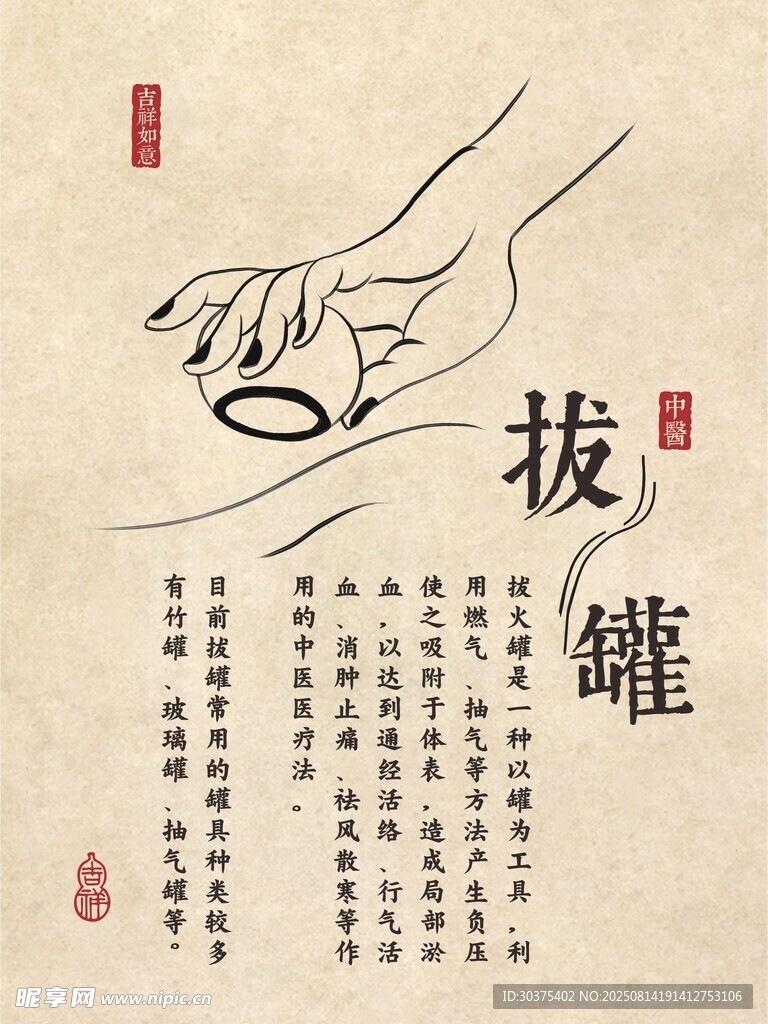 吉祥如意
中醫
拔
罐
拔火罐是一种以罐为工具，利
用燃气、抽气等方法产生负压
使之吸附于体表，造成局部淤
血，以达到通经活络、行气活
血、消肿止痛、祛风散寒等作
用的中医医疗法。
目前拔罐常用的罐具种类较多
有竹罐、玻璃罐、抽气罐等。
吉祥
昵享网 www.nipic.cn
ID:30375402 NO:20250814191412753106